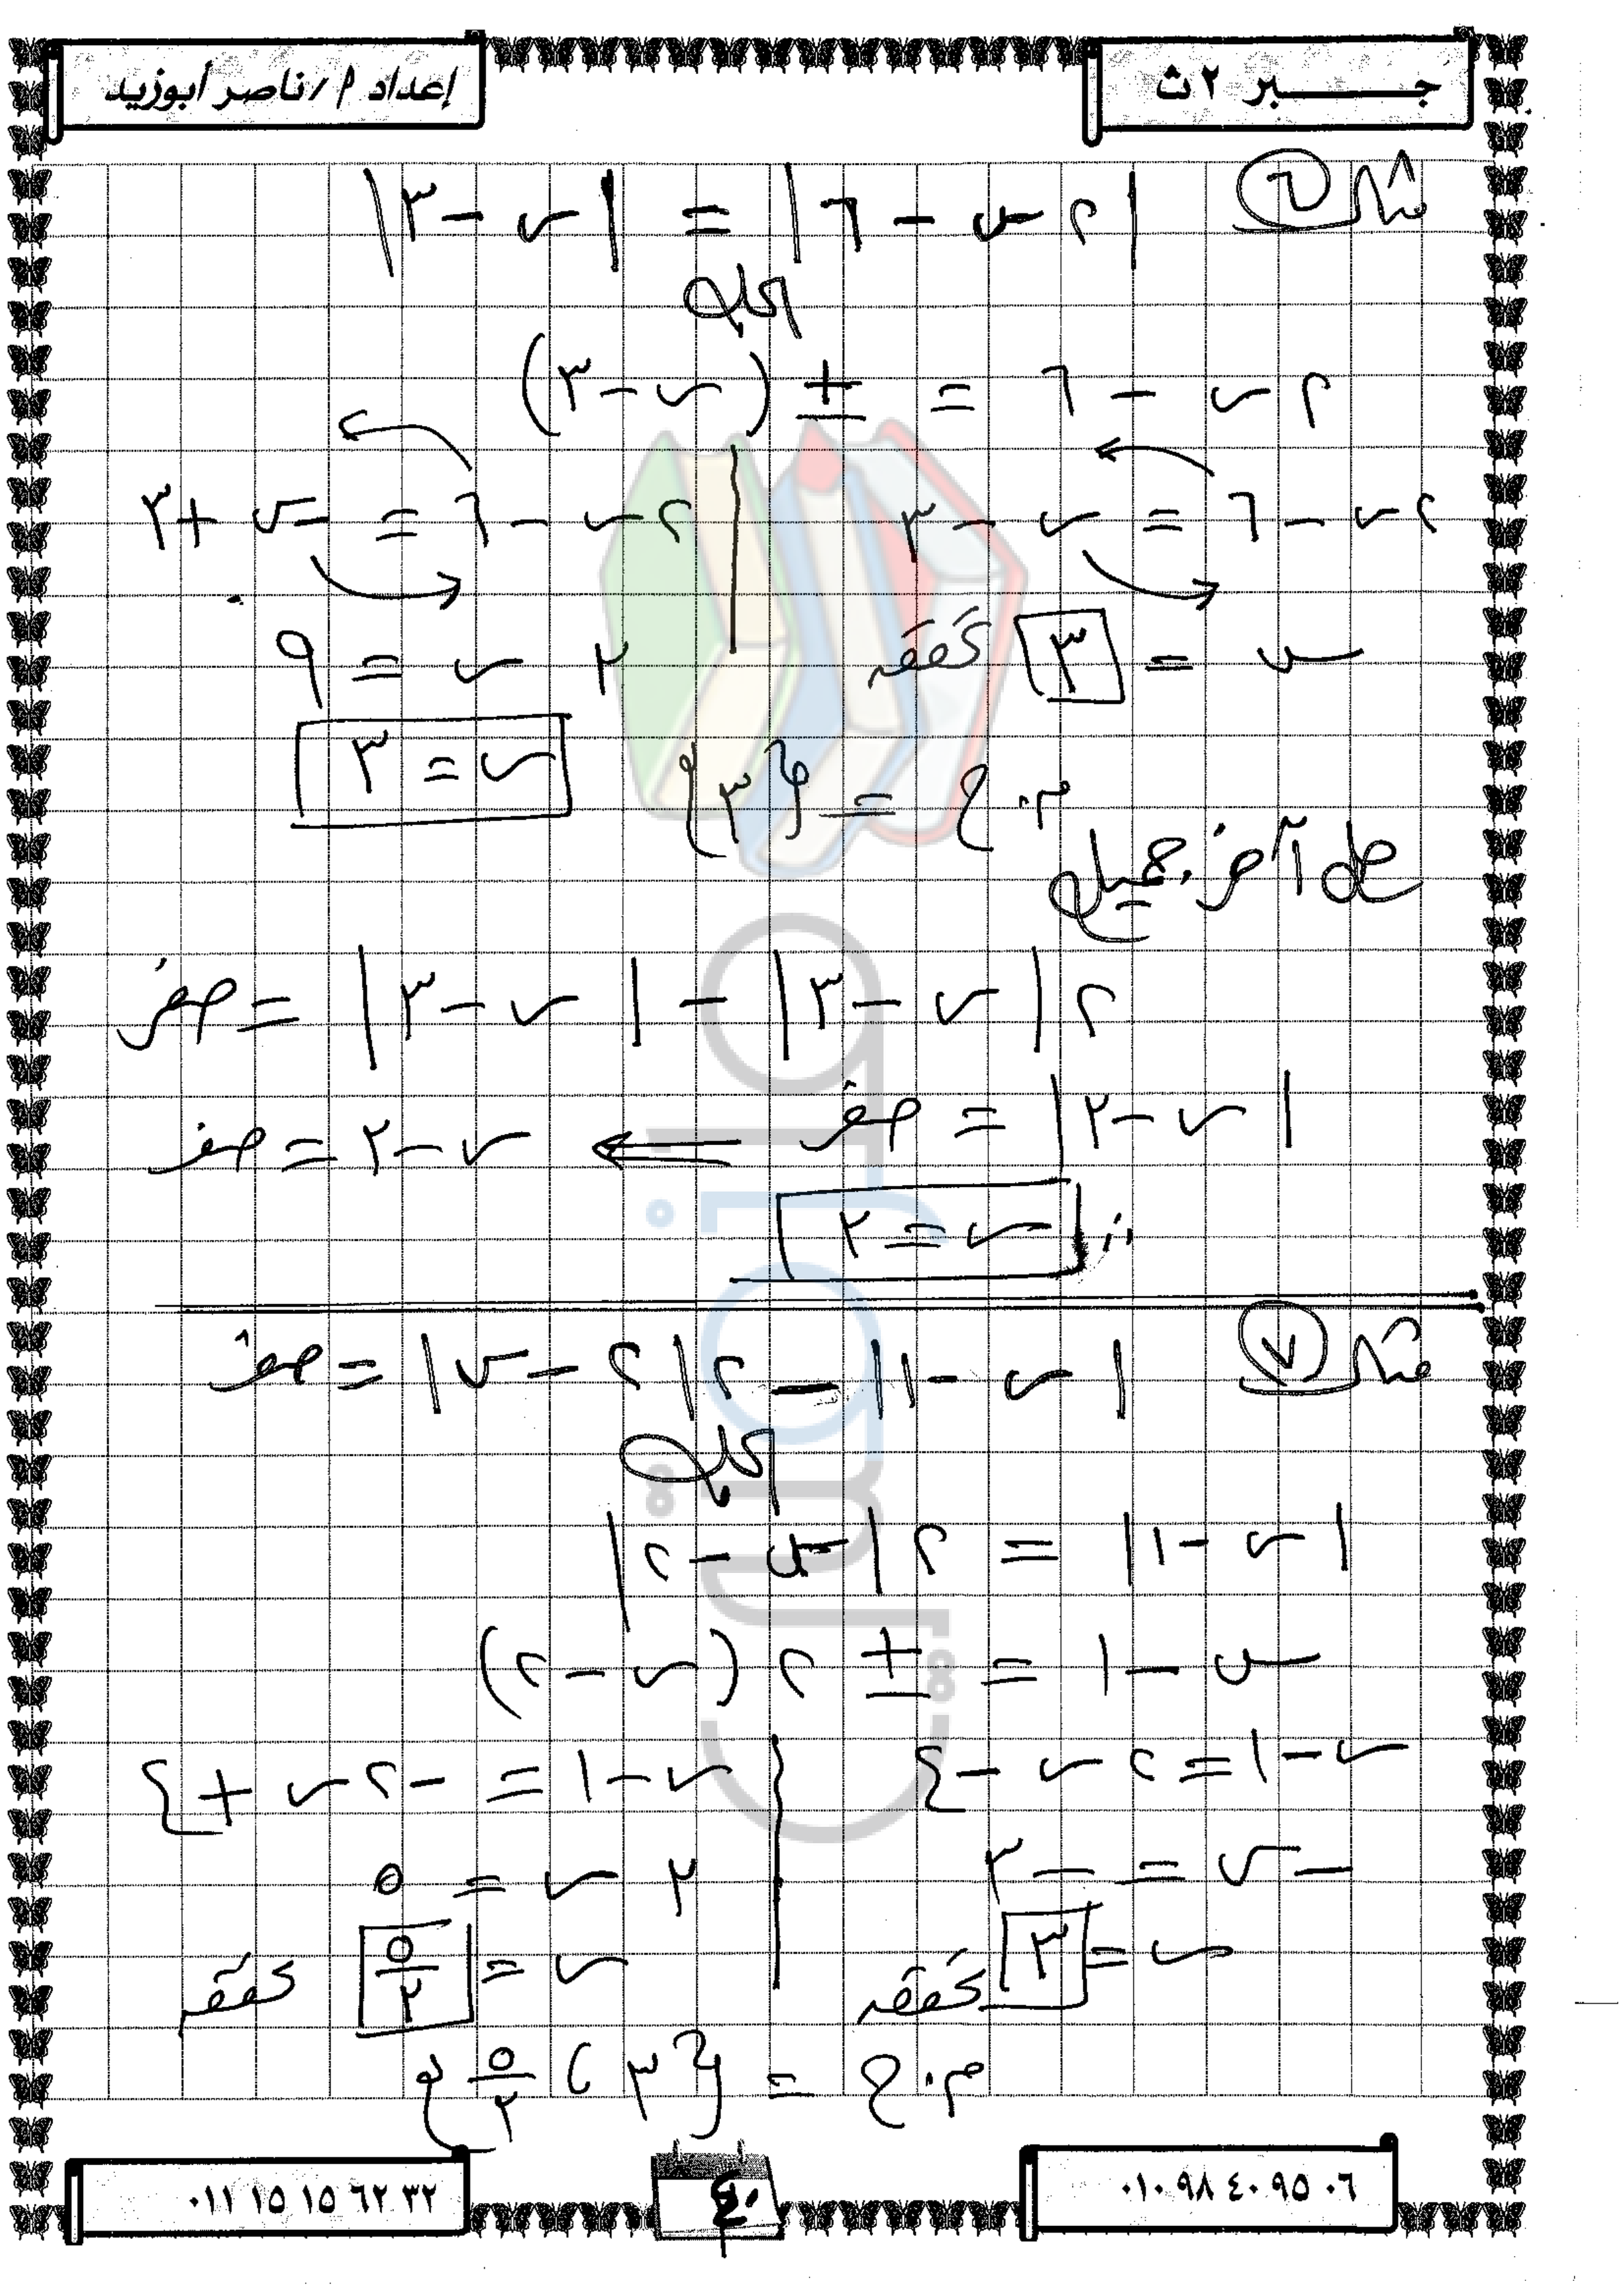 جبر ٢ ث
إعداد أ/ ناصر أبوزيد
مثال ٦ |٢س - ٦| = |س - ٣|
الحل
٢س - ٦ = ± (س - ٣)
٢س - ٦ = س - ٣ | ٢س - ٦ = -س + ٣
س = ٣ تحققه | ٣س = ٩
س = ٣
م.ح = {٣}
حل آخر جميل
٢|س - ٣| - |س - ٣| = صفر
|س - ٣| = صفر ⟸ س - ٣ = صفر
∴ س = ٣
مثال ٧ |س - ١| - ٢|٢ - س| = صفر
الحل
|س - ١| = ٢|س - ٢|
س - ١ = ± ٢(س - ٢)
س - ١ = ٢س - ٤ | س - ١ = -٢س + ٤
-س = -٣ | ٣س = ٥
س = ٣ تحققه | س = ٥/٣ تحققه
م.ح = {٣ ، ٥/٣}
٠١٠ ٩٨ ٤٠ ٩٥ ٠٦
٤٠
٠١١ ١٥ ١٥ ٦٢ ٣٢